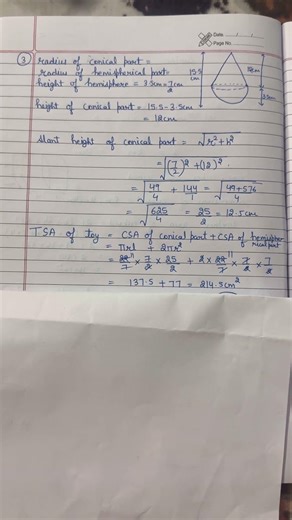 Date / /
Page No.
③ radius of conical part =
radius of hemispherical part =
height of hemisphere = 3.5cm = 7/2 cm
15.5 cm
12cm
3.5cm
height of conical part = 15.5 - 3.5cm
= 12cm
slant height of conical part = √r²+h²
= √(7/2)² + (12)²
= √49/4 + 144/1 = √49+576/4
= √625/4 = 25/2 = 12.5cm
TSA of toy = CSA of conical part + CSA of hemispherical part
= πrl + 2πr²
= 22/7 11 × 7/2 × 25/2 + 2 × 22/7 11 × 7/2 × 7/2
= 137.5 + 77 = 214.5cm²